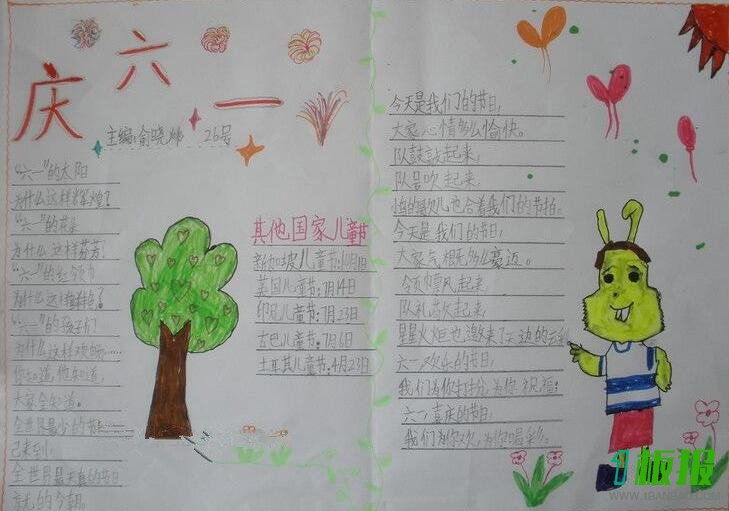 庆六一
主编:俞晓 26号
“六一”的太阳
为什么这样辉煌?
“六一”的花朵
为什么这样芬芳?
“六一”的红领巾
为什么这样
“六一”的孩子们
为什么这样欢畅……
你知道,他知道,
大家全知道。
全世界最少的节
已来到;
全世界最 的节日
的今朝。
其他国家儿童节
新加坡儿童节:10月1日
美国儿童节:7月14日
印尼儿童节:7月23日
古巴儿童节:7月6日
土耳其儿童节:4月23日
今天是我们的节日,
大家心情多么愉快。
队鼓敲起来,
队号吹起来,
的 儿也合着我们的节拍。
今天是我们的节日,
大家气 多么豪迈。
令巾飘起来,
队礼 起来,
星星火炬也邀来了天边的云彩
六一欢乐的节日,
我们为你打扮,为你祝福;
六一喜庆的节日,
我们为你欢,为你喝彩。
1板报
WWW.1BANBAO.COM